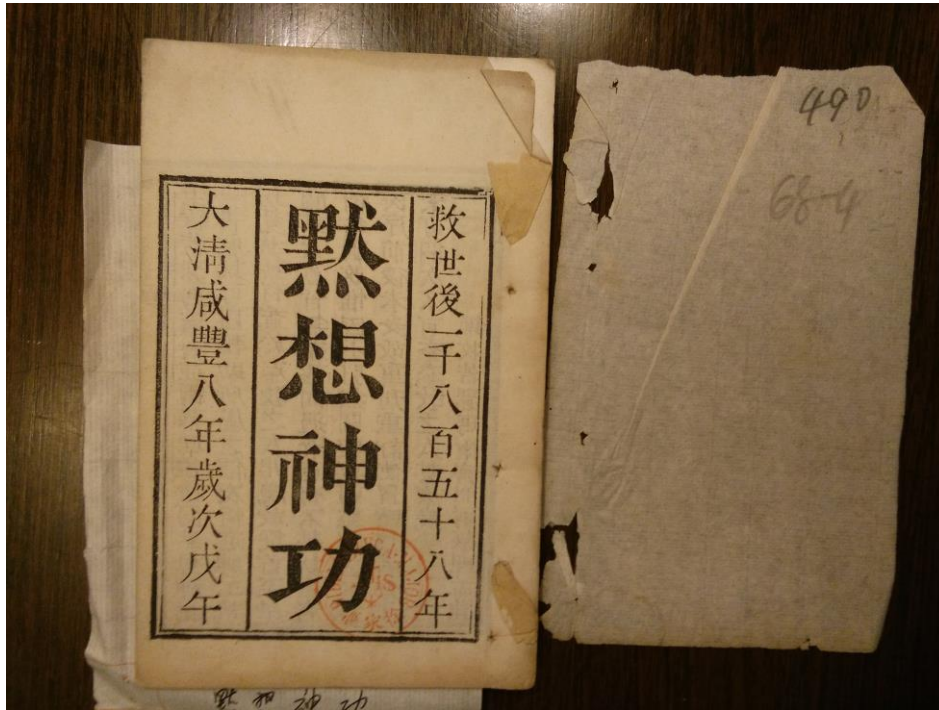 救世後一千八百五十八年
默想神功
大清咸豐八年歲次戊午
490
68-4
默想神功